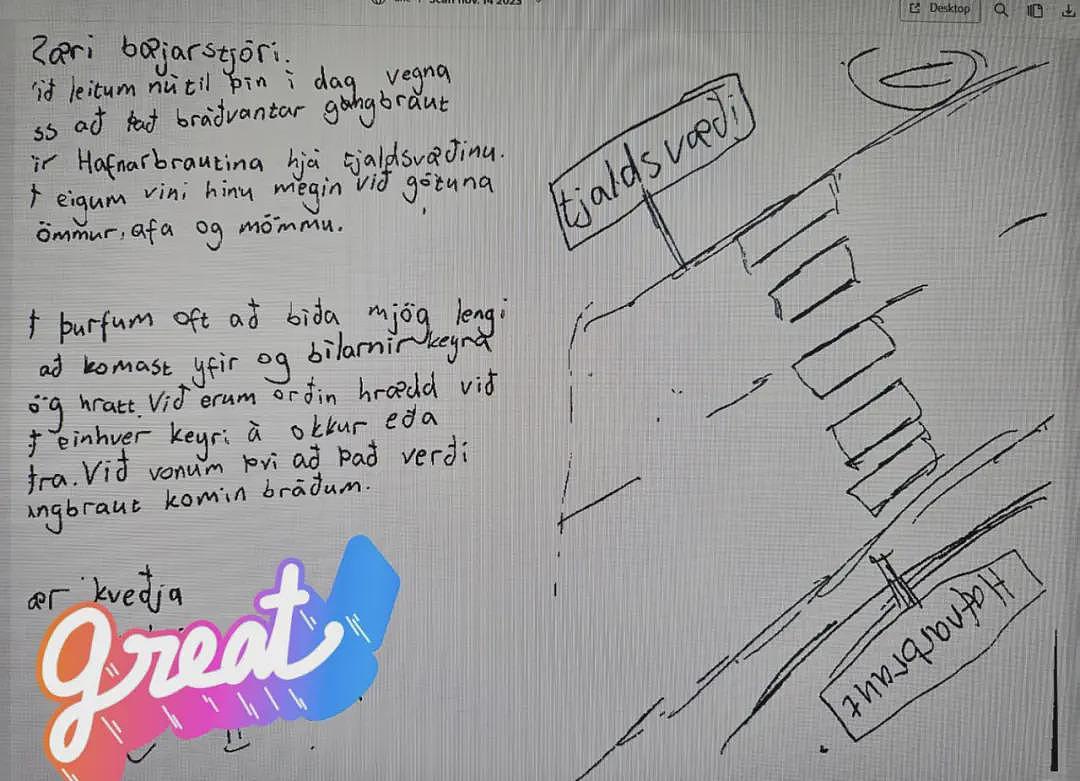 Scan nov. 14 2023
Desktop
Kæri bæjarstjóri.
ið leitum nú til þín í dag vegna
ss að það bráðvantar gangbraut
ir Hafnarbrautina hjá tjaldsvæðinu.
eigum vini hinu megin við götuna
ömmur, afa og mömmu.
þurfum oft að bíða mjög lengi
að komast yfir og bílarnir keyra
ög hratt. Við erum orðin hrædd við
einhver keyri á okkur eða
tra. Við vonum því að það verði
ngbraut komin bráðum.
ær kveðja
great
tjaldsvæði
Hafnarbraut